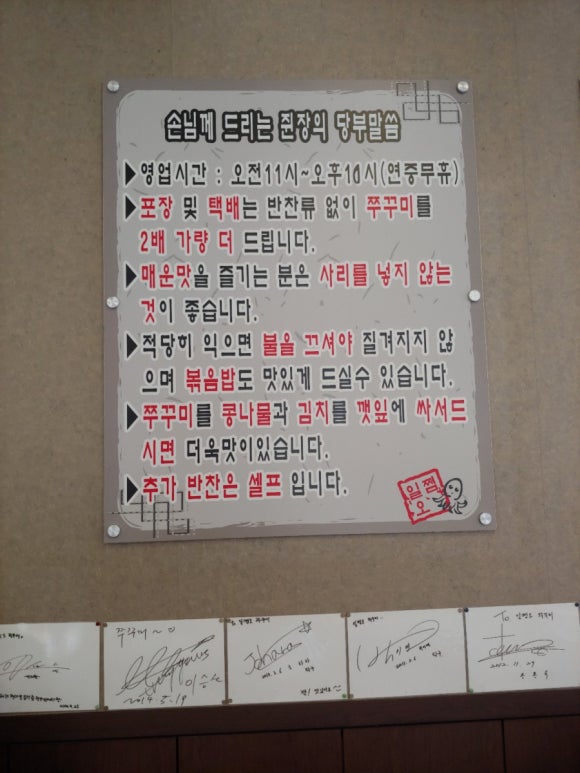 손님께 드리는 쥔장의 당부말씀
▶영업시간 : 오전11시~오후10시(연중무휴)
▶포장 및 택배는 반찬류 없이 쭈꾸미를
2배 가량 더 드립니다.
▶매운맛을 즐기는 분은 사리를 넣지 않는
것이 좋습니다.
▶적당히 익으면 불을 끄셔야 질겨지지 않
으며 볶음밥도 맛있게 드실수 있습니다.
▶쭈꾸미를 콩나물과 김치를 깻잎에 싸서드
시면 더욱맛이있습니다.
▶추가 반찬은 셀프 입니다.
일쩜
오
쭈꾸미~
이승
2014.5.19
To
2012.11.27